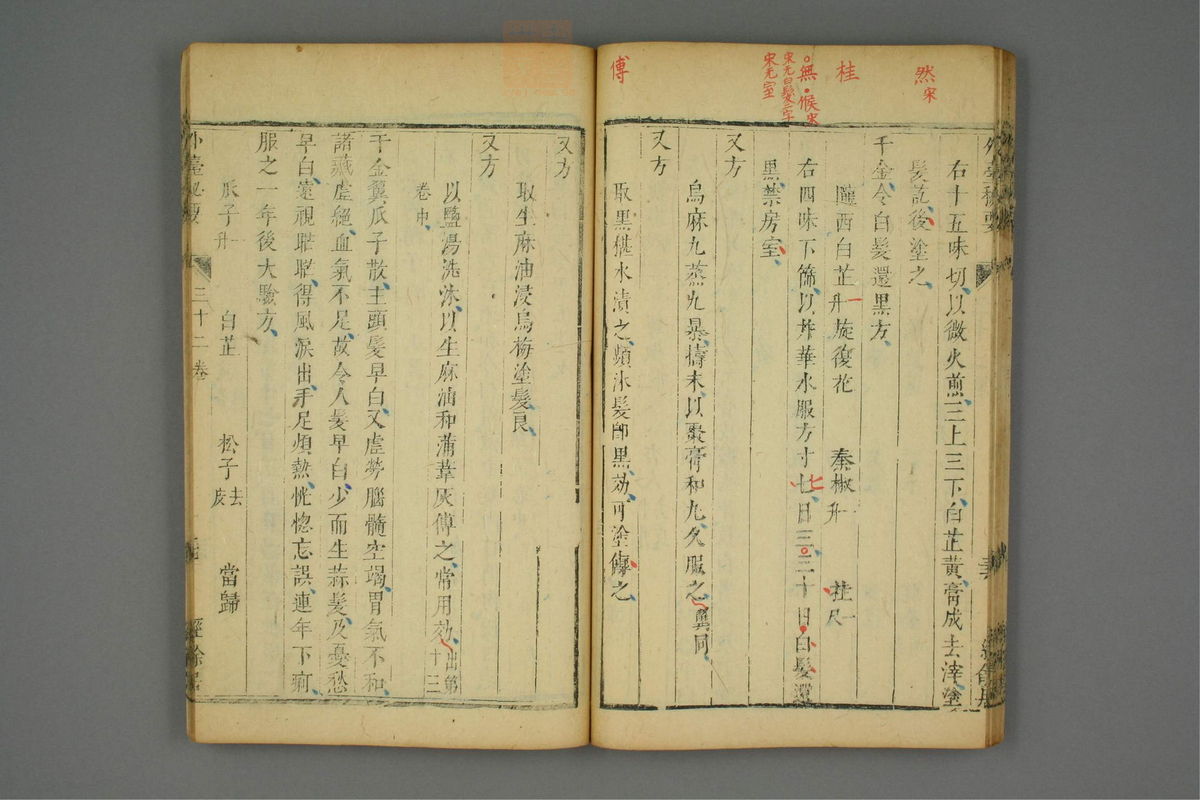 然宋
桂
無候宋
宋無白髮二字
宋無室
傅
右十五味切以微火煎三上三下白芷黃膏成去滓塗
髮訖後塗之
千金令白髮還黑方
隴西白芷一升 旋復花 秦椒一升 桂一尺
右四味下篩以井華水服方寸七日三三十日白髮還
黑禁房室
又方
烏麻九蒸九暴擣末以棗膏和丸久服之翼同
又方
取黑椹水漬之頻沐髮即黑効可塗傅之
又方
取生麻油浸烏梅塗髮良
又方
以鹽湯洗沐以生麻油和蒲葦灰傅之常用効出第十三
卷中
千金翼瓜子散主頭髮早白又虛勞腦髓空竭胃氣不和
諸藏虛絕血氣不足故令人髮早白少而生蒜髮及憂愁
早白遠視䀮䀮得風淚出手足煩熱恍惚忘誤連年下痢
服之一年後大驗方
瓜子一升 白芷 松子去皮 當歸
外臺秘要 三十二卷
經餘居